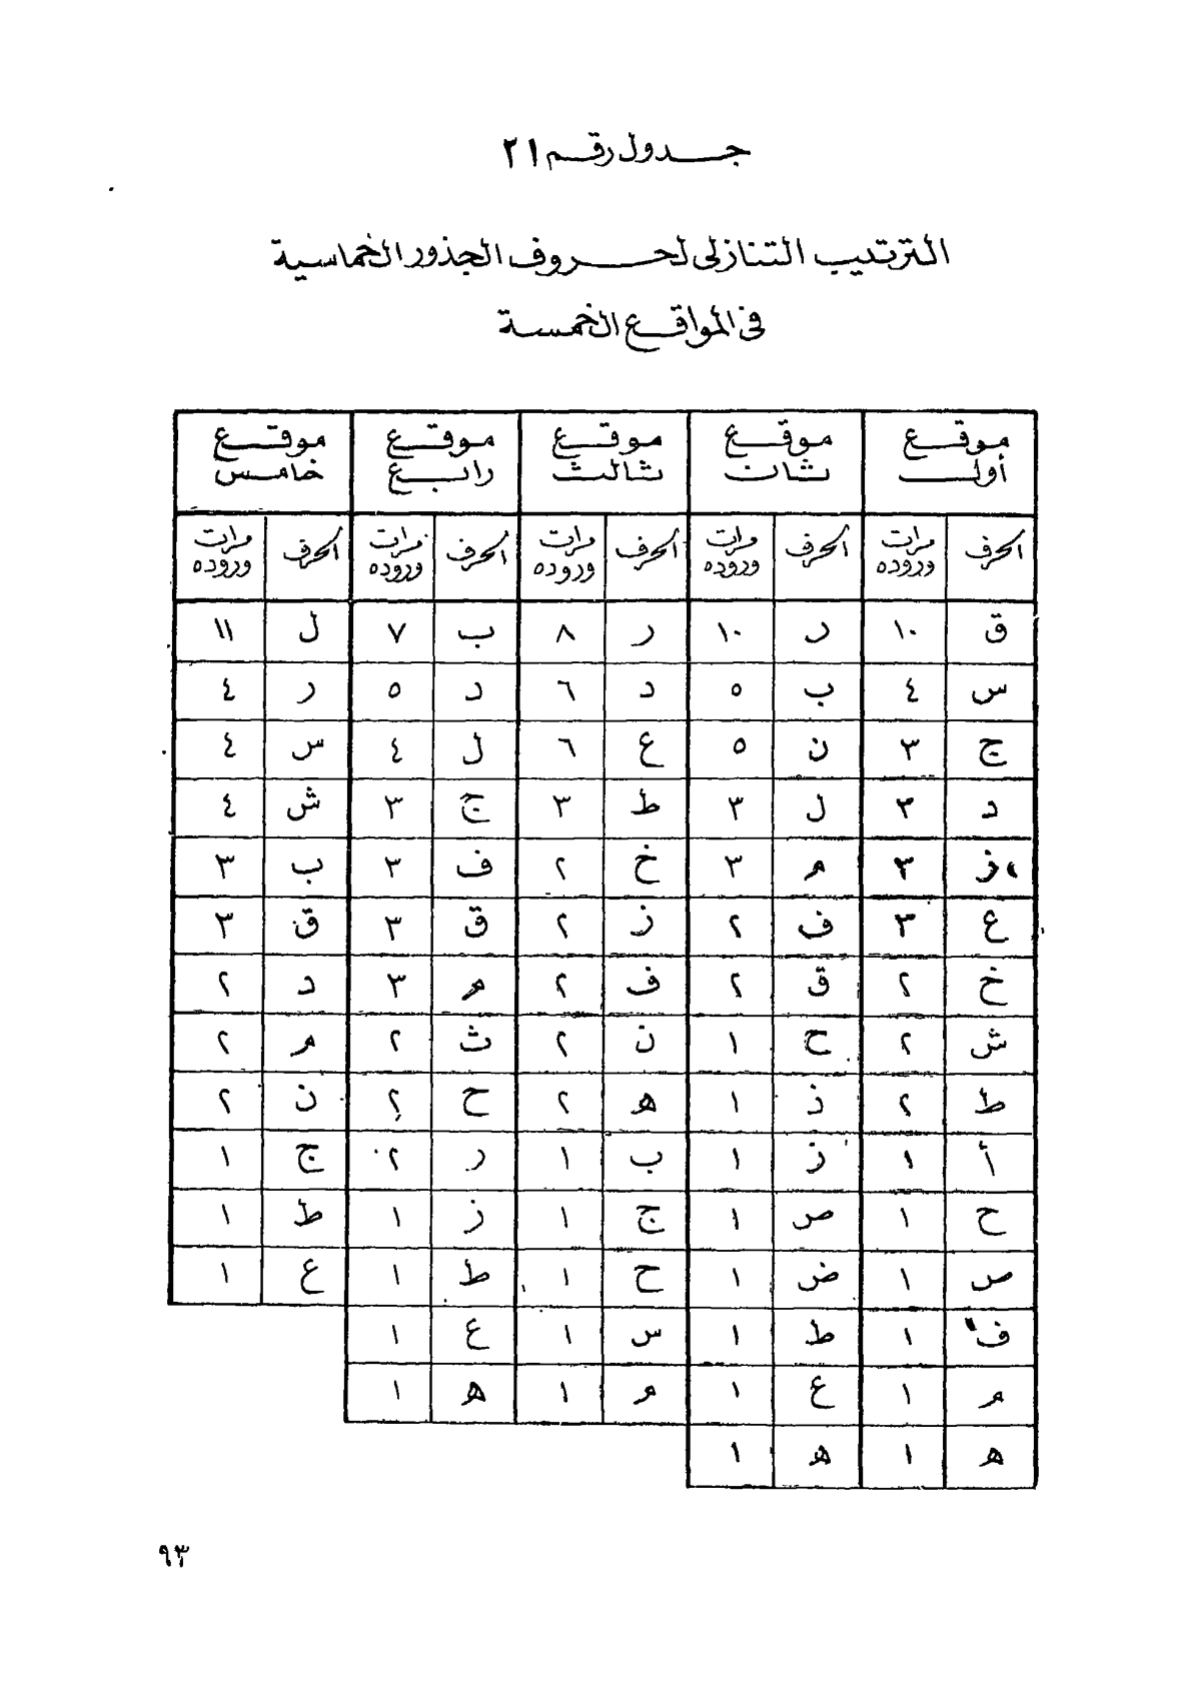 جدول رقم ٢١
الترتيب التنازلى لحروف الجذور الخماسية
فى المواقع الخمسة
موقع أول موقع ثان موقع ثالث موقع رابع موقع خامس
الحرف مرات وروده الحرف مرات وروده الحرف مرات وروده الحرف مرات وروده الحرف مرات وروده
ق ١٠ ر ١٠ ر ٨ ب ٧ ل ١١
س ٤ ب ٥ د ٦ د ٥ ر ٤
ج ٣ ن ٥ ع ٦ ل ٤ س ٤
د ٣ ل ٣ ط ٣ ج ٣ ش ٤
ز ٣ م ٣ خ ٢ ف ٣ ب ٣
ع ٣ ف ٢ ز ٢ ق ٣ ق ٣
خ ٢ ق ٢ ف ٢ م ٣ د ٢
ش ٢ ح ١ ن ٢ ث ٢ م ٢
ط ٢ ذ ١ ه ٢ ح ٢ ن ٢
أ ١ ز ١ ب ١ ر ٢ ج ١
ح ١ ص ١ ج ١ ز ١ ط ١
ص ١ ض ١ ح ١ ط ١ ع ١
ف ١ ط ١ س ١ ع ١
م ١ ع ١ م ١ ه ١
ه ١ ه ١
٩٣